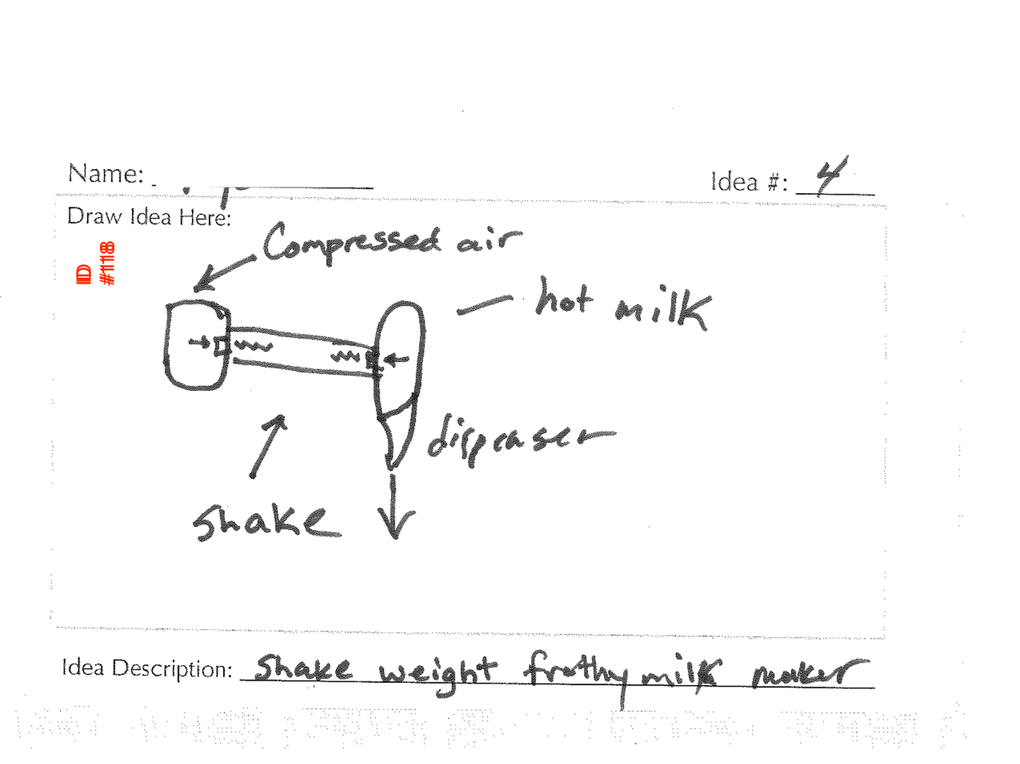 Name:
Idea #: 4
Draw Idea Here:
ID
#1118
Compressed air
hot milk
dispenser
shake
Idea Description: Shake weight frothy milk maker